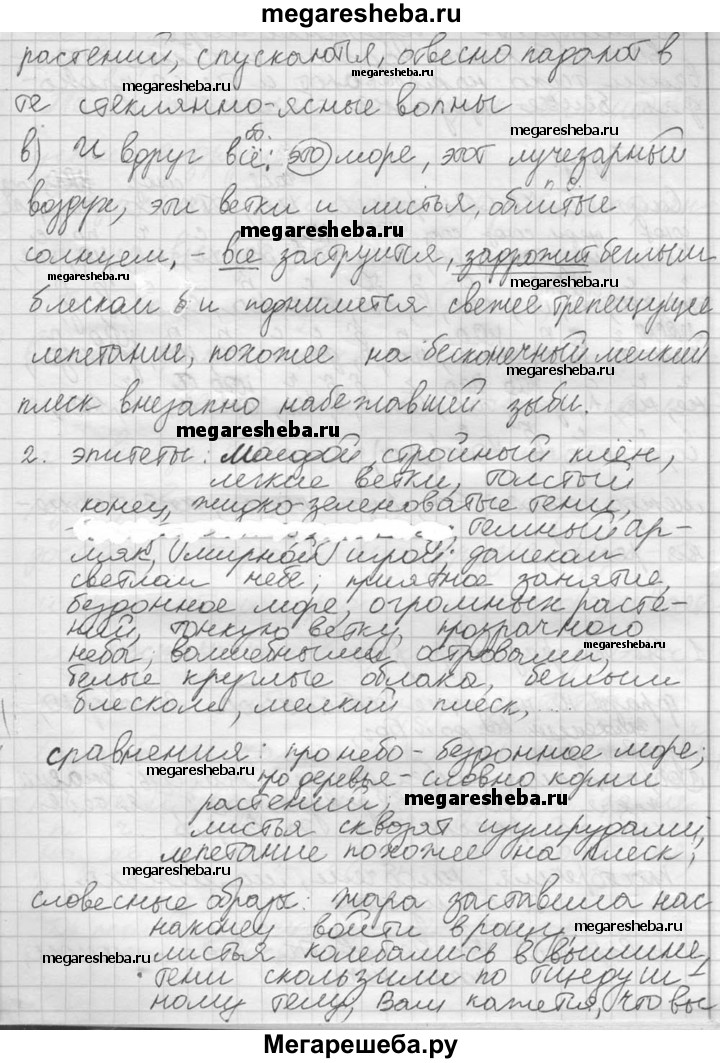 megaresheba.ru
растений, спускаются, отвесно падают в
megaresheba.ru
megaresheba.ru
те стеклянно-ясные волны
megaresheba.ru
об.
в) И вдруг всё: это море, этот лучезарный
воздух, эти ветки и листья, облитые
megaresheba.ru
солнцем, - все заструится, задрожит беглым
megaresheba.ru
megaresheba.ru
блеском и поднимется свежее трепещущее
лепетание, похожее на бесконечный мелкий
megaresheba.ru
плеск внезапно набежавшей зыби.
megaresheba.ru
2. эпитеты: Молодой, стройный клён,
легкие ветки, толстый
конец, жидко-зеленоватые тени,
темный ар-
мяк, мирной игрой; далеком
светлом небе; приятное занятие,
бездонное море, огромных расте-
ний, тонкую ветку, прозрачного
неба; волшебными островами,
megaresheba.ru
белые круглые облака, беглым
блеском, мелкий плеск, ...
сравнения: про небо - бездонное море;
megaresheba.ru
про деревья - словно корни
растений;
megaresheba.ru
листья сквозят изумрудами;
лепетание похожее на плеск;
megaresheba.ru
словесные образы: жара заставила нас
наконец войти в рощу
листья колебались в вышине,
megaresheba.ru
megaresheba.ru
тени скользили по тщедуш-
ному телу, Вам кажется, что вы
megaresheba.ru
Мегарешеба.ру